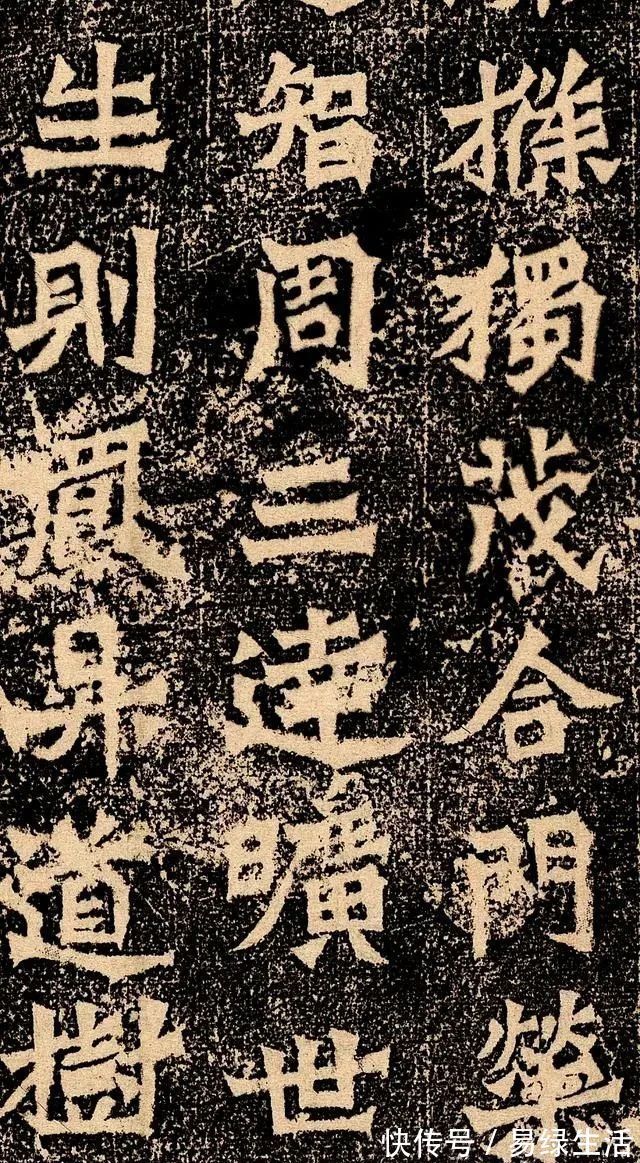 條獨茂合門榮
智周三達曠世
生則鳳昇道樹
快传号 / 易绿生活